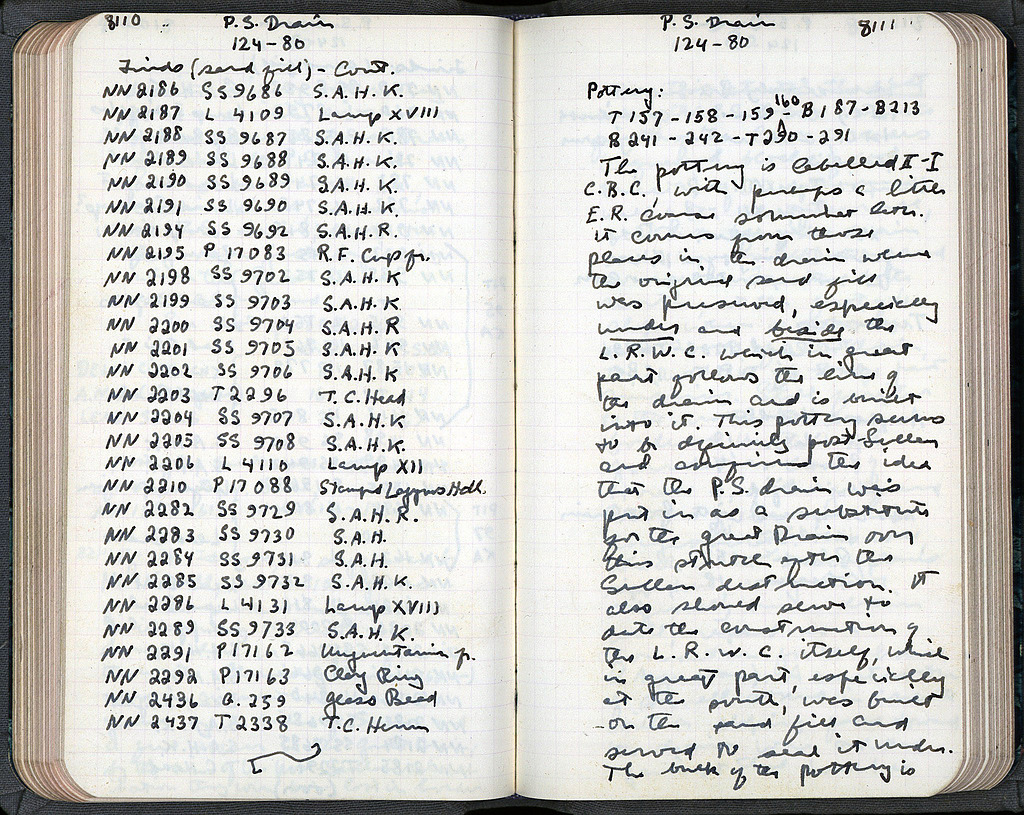 8110
P.S. Drain
124-80
Finds (sand fill) - Cont.
NN 2186 SS 9686 S.A.H.K.
NN 2187 L 4109 Lamp XVIII
NN 2188 SS 9687 S.A.H.K.
NN 2189 SS 9688 S.A.H.K.
NN 2190 SS 9689 S.A.H.K.
NN 2191 SS 9690 S.A.H.K.
NN 2194 SS 9692 S.A.H.R.
NN 2195 P 17083 R.F. Cup fr.
NN 2198 SS 9702 S.A.H.K
NN 2199 SS 9703 S.A.H.K
NN 2200 SS 9704 S.A.H.R
NN 2201 SS 9705 S.A.H.K
NN 2202 SS 9706 S.A.H.K
NN 2203 T 2296 T.C. Head
NN 2204 SS 9707 S.A.H.K
NN 2205 SS 9708 S.A.H.K.
NN 2206 L 4110 Lamp XII
NN 2210 P 17088 Stamped
NN 2282 SS 9729 S.A.H.R.
NN 2283 SS 9730 S.A.H.
NN 2284 SS 9731 S.A.H.
NN 2285 SS 9732 S.A.H.K.
NN 2286 L 4131 Lamp XVIII
NN 2289 SS 9733 S.A.H.K.
NN 2291 P 17162 Unguentarium fr.
NN 2292 P 17163 Clay Ring
NN 2436 G. 259 Glass Bead
NN 2437 T 2338 T.C. Herm
I
P.S. Drain
8111
124-80
Pottery:
T 157 - 158 - 159 - 160 - B 187 - B 213
B 241 - 242 - T 290 - 291
The pottery is labelled II-I
C.B.C, with perhaps a little
E.R. coarse somewhat later.
It comes from those
places in the drain where
the original sand fill
was preserved, especially
under and beside the
L.R.W.C. which in great
part follows the line of
the drain and is built
into it. This pottery seems
to be definitely post-Sullan
and confirms the idea
that the P.S. drain was
put in as a substitute
for the great Drain over
this stretch after the
Sullan destruction. It
also should serve to
date the construction of
the L.R.W.C. itself, which
in great part, especially
at the south, was built
on the sand fill and
served to seal it under.
The bulk of the pottery is